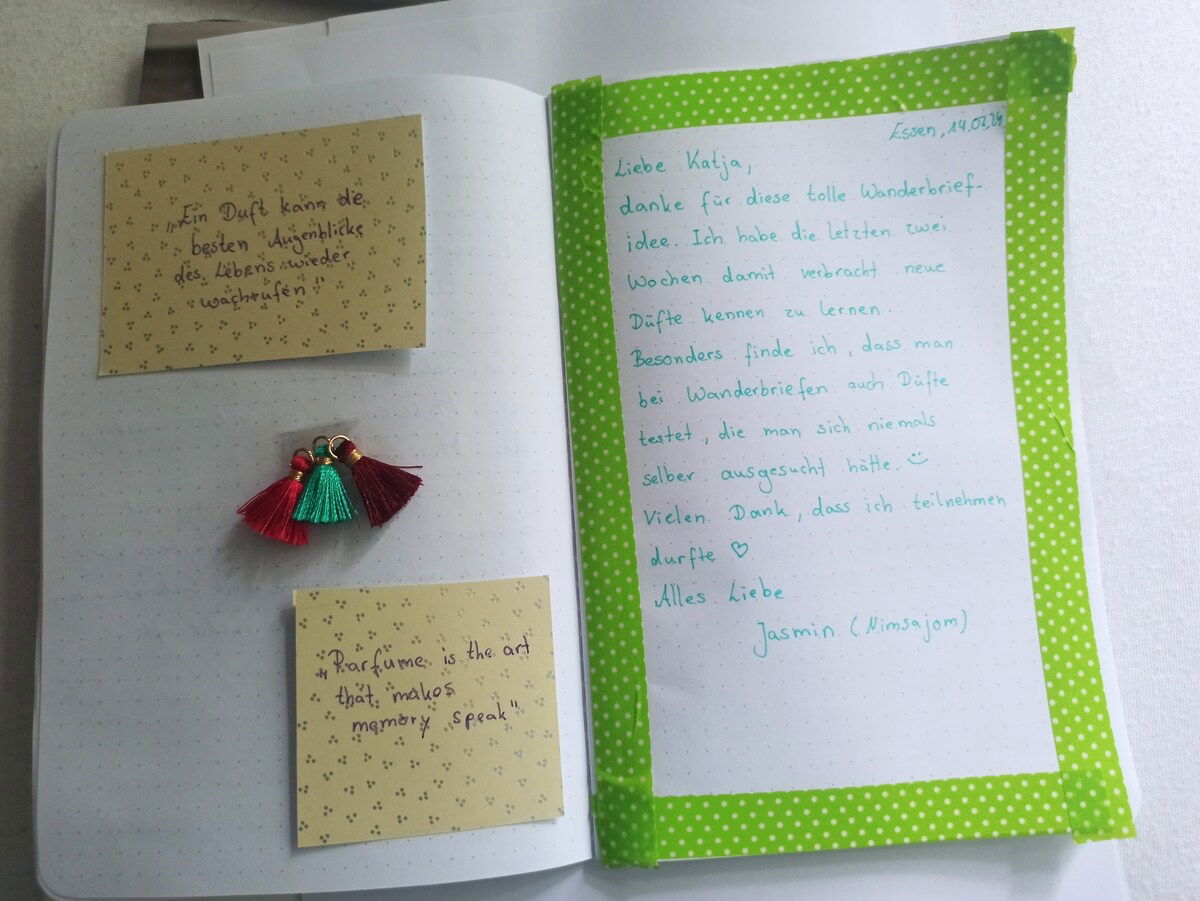 „Ein Duft kann die
besten Augenblicke
des Lebens wieder
wachrufen"
„Parfume is the art
that makes
memory speak"
Essen, 14.07.24
Liebe Katja,
danke für diese tolle Wanderbrief-
idee. Ich habe die letzten zwei
Wochen damit verbracht neue
Düfte kennen zu lernen.
Besonders finde ich, dass man
bei Wanderbriefen auch Düfte
testet, die man sich niemals
selber ausgesucht hätte. :)
Vielen Dank, dass ich teilnehmen
durfte ♡
Alles Liebe
Jasmin (Nimsajom)